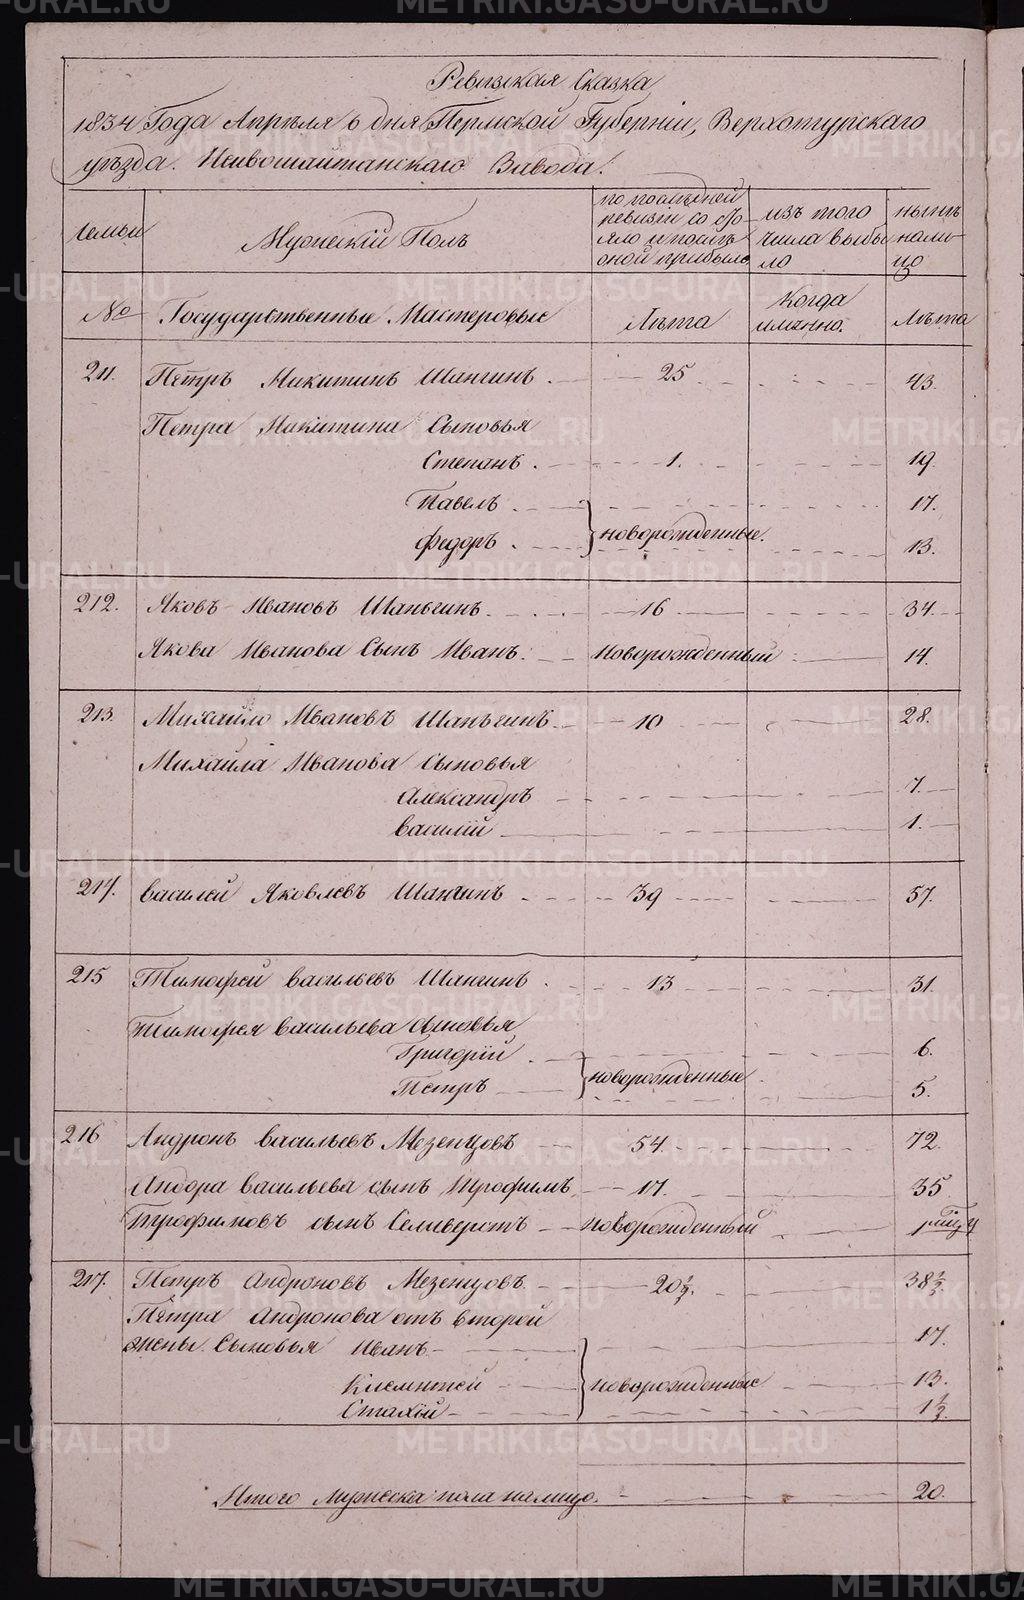 Ревизкая Сказка
1834 Года Апреля 6 дня Пермской Губернiи, Верхотурскаго
уѣзда. Нейвошайтанскаго Завода.
Семьи
Мужескiй Полъ
по последней ревизiи состояло и после оной прибыло
изъ того числа выбыло
нынѣ налицо
№
Государственные Мастеровые
Лѣта
Когда имянно.
Лѣта
211. Пётръ Никитинъ Шангинъ. 25 43.
Петра Никитина Сыновья
Степанъ. 1. 19.
Павелъ. 17.
новорожденные.
Федоръ. 13.
212. Яковъ Ивановъ Шаньгинъ. 16 34.
Якова Иванова Сынъ Иванъ. Новорожденный 14.
213. Михайло Ивановъ Шаньгинъ. 10 28.
Михайла Иванова Сыновья
Александръ 7.
Василiй 1.
214. Василей Яковлевъ Шангинъ 39 57.
215 Тимофей Васильевъ Шангинъ. 13 31.
Тимофея Васильева Сыновья
Григорiй. 6.
новорожденные.
Петръ 5.
216 Андронъ Васильевъ Мезенцовъ 54. 72.
Андрона Васильева сынъ Трофимъ 17. 35
Трофимовъ сынъ Селиверстъ Новорожденный
217. Петръ Андроновъ Мезенцовъ. 20½. 38½.
Пётра Андронова отъ второй
жены. Сыновья Иванъ 17.
Климнтей новорожденные 13.
Стахiй 1½.
Итого Мужеска пола налицо. 20.
METRIKI.GASO-URAL.RU